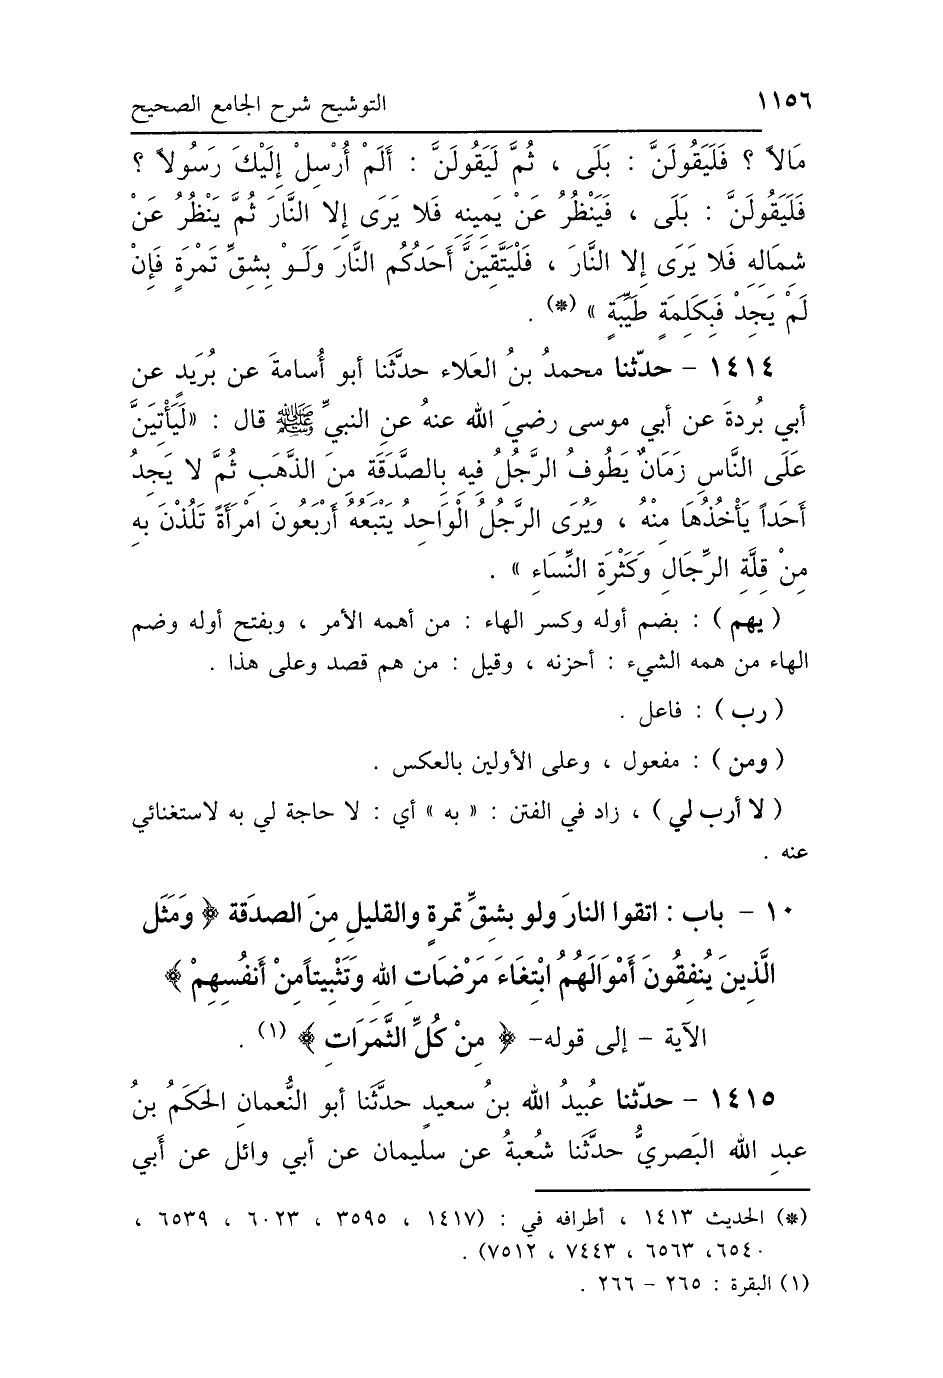 ١١٥٦ التوشيح شرح الجامع الصحيح
مَالاً ؟ فَلَيَقُولَنَّ : بَلَى ، ثُمَّ لَيَقُولَنَّ : أَلَمْ أُرْسِلْ إِلَيْكَ رَسُولاً ؟
فَلَيَقُولَنَّ : بَلَى ، فَيَنْظُرُ عَنْ يَمِينِهِ فَلا يَرَى إلا النَّارَ ثُمَّ يَنْظُرُ عَنْ
شِمَالِهِ فَلا يَرَى إلا النَّارَ ، فَلْيَتَّقِيَنَّ أَحَدُكُم النَّارَ وَلَـوْ بِشِقِّ تَمْرَةٍ فَإِنْ
لَمْ يَجِدْ فَبِكَلِمَةٍ طَيِّبَةٍ » (*) .
١٤١٤ - حدّثنا محمدُ بنُ العَلاء حدَّثَنا أبو أُسامةَ عن بُرَيدٍ عن
أبي بُردةَ عن أبي موسى رضيَ الله عنهُ عنِ النبيِّ ﷺ قال : «لَيَأْتِيَنَّ
عَلَى النَّاسِ زَمَانٌ يَطُوفُ الرَّجُلُ فِيهِ بِالصَّدَقَةِ مِنَ الذَّهَبِ ثُمَّ لا يَجِدُ
أَحَداً يَأْخُذُهَا مِنْهُ ، وَيُرَى الرَّجُلُ الْوَاحِدُ يَتْبَعُهُ أَرْبَعُونَ امْرَأَةً تَلُذْنَ بِهِ
مِنْ قِلَّةِ الرِّجَالِ وَكَثْرَةِ النِّسَاءِ » .
( يهم ) : بضم أوله وكسر الهاء : من أهمه الأمر ، وبفتح أوله وضم
الهاء من همه الشيء : أحزنه ، وقيل : من هم قصد وعلى هذا .
( رب ) : فاعل .
( ومن ) : مفعول ، وعلى الأولين بالعكس .
( لا أرب لي ) ، زاد في الفتن : « به » أي : لا حاجة لي به لاستغنائي
عنه .
١٠ - باب : اتقوا النارَ ولو بشقِّ تمرةٍ والقليلِ مِنَ الصدَقة ﴿ وَمَثَل
الَّذِينَ يُنفِقُونَ أَمْوَالَهُمُ ابْتِغَاءَ مَرْضَاتِ اللهِ وَتَثْبِيتاًمِنْ أَنفُسِهِمْ ﴾
الآية - إلى قوله- ﴿ مِنْ كُلِّ الثَّمَرَاتِ ﴾ (١) .
١٤١٥ - حدّثنا عُبيدُ الله بنُ سعيدٍ حدَّثَنا أبو النُّعمانِ الحَكَمُ بنُ
عبدِ الله البَصريُّ حدَّثَنا شُعبةُ عن سليمان عن أبي وائل عن أَبي
(*) الحديث ١٤١٣ ، أطرافه في : (١٤١٧ ، ٣٥٩٥ ، ٦٠٢٣ ، ٦٥٣٩ ،
٦٥٤٠، ٦٥٦٣ ، ٧٤٤٣ ، ٧٥١٢) .
(١) البقرة : ٢٦٥ - ٢٦٦ .